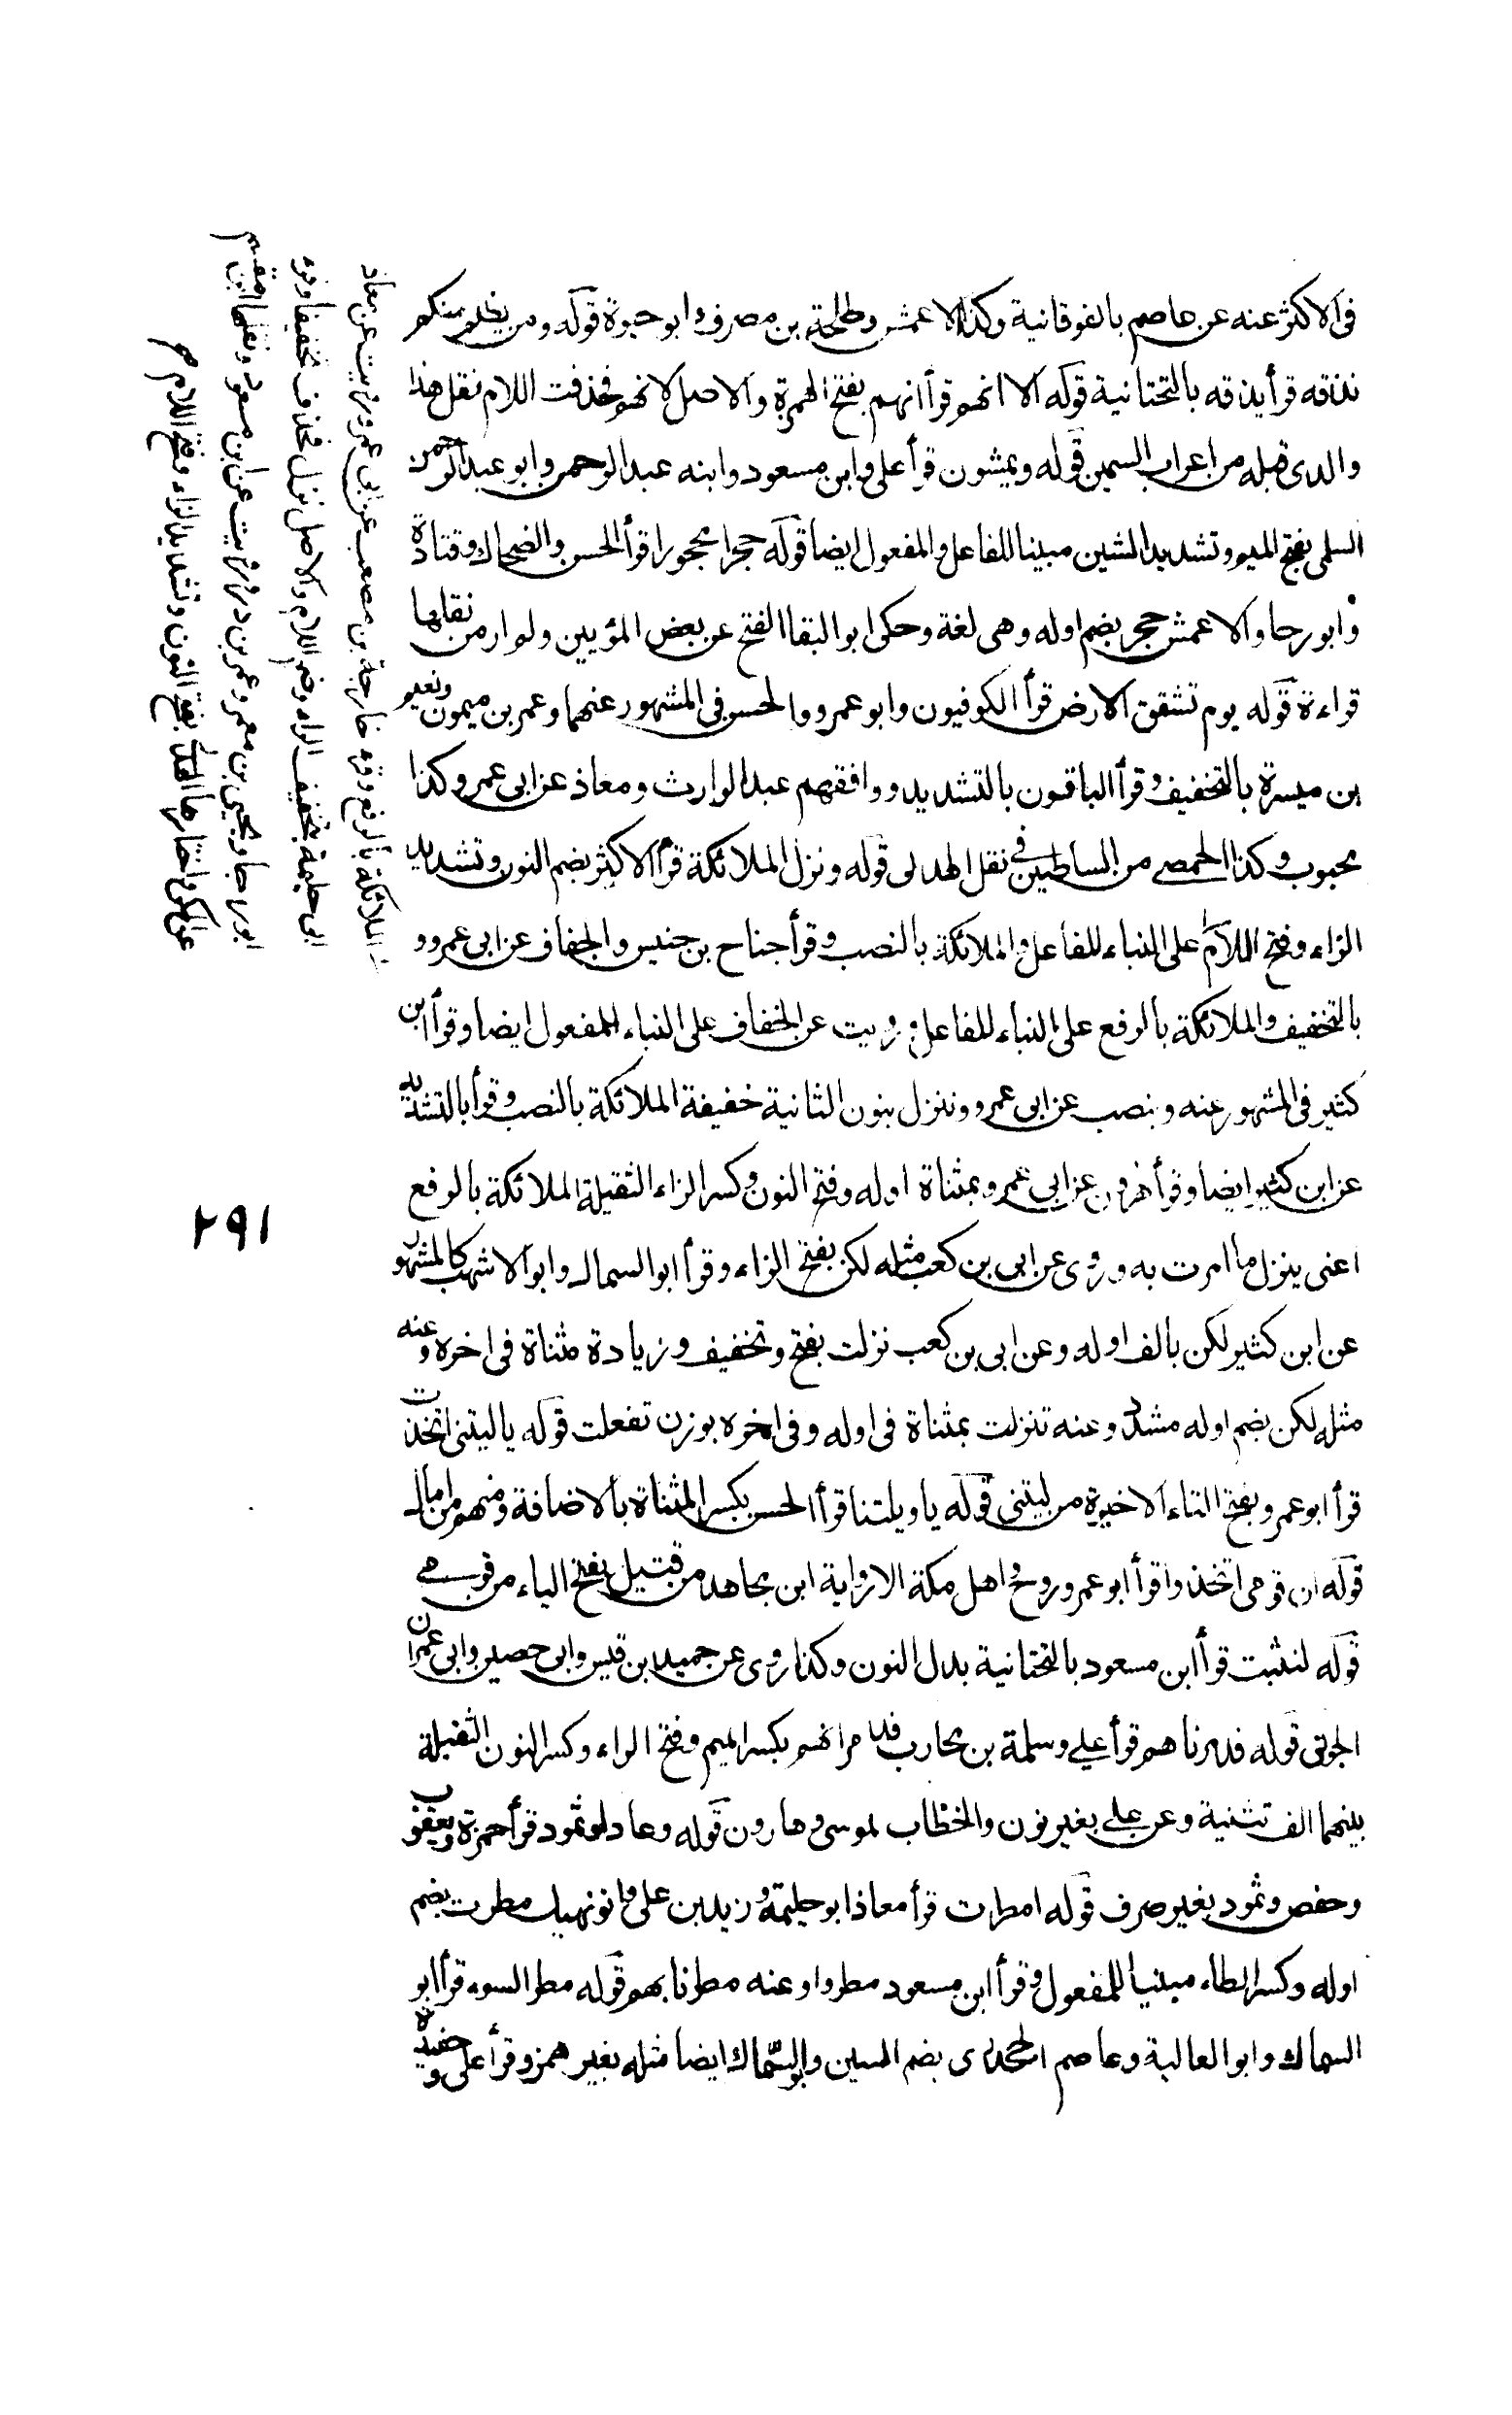 في الاكثر عنه عن عاصم بالفوقانية وكذا الاعمش وطلحة بن مصرف وابو حيوة قوله ومن يظلم منكم
نذقه قرأ يذقه بالتحتانية قوله الا انهم قرأ انهم بفتح الهمزة والاصل لانهم فحذفت اللام نقل هذا
والذى قبله من اعراب السمين قوله ويمشون قرأ على وابن مسعود وابنه عبد الرحمن وابو عبد الرحمن
السلمى بفتح الميم وتشديد الشين مبينا للفاعل والمفعول ايضا قوله حجرا محجورا قرأ الحسن والضحاك وقتادة
وابو رجا والاعمش حجر بضم اوله وهى لغة وحكى ابو البقا الفتح عن بعض المؤيين ولم ار من نقلها
قراءة قوله يوم تشقق الارض قرأ الكوفيون وابو عمرو والحسن فى المشهور عنهما وعمر بن ميمون ونعيم
بن ميسرة بالتخفيف وقرأ الباقون بالتشديد ووافقهم عبد الوارث ومعاذ عن ابى عمرو كذا
محبوب وكذا الحمصى من الساطين فى نقل الهدلى قوله ونزل الملائكة قرأ الاكثر بضم النون وتشديد
الزاء وفتح اللام على البناء للفاعل والملائكة بالنصب وقرأ جناح بن جنيس والخفاف عن ابى عمرو و
بالتخفيف والملائكة بالرفع على البناء للفاعل ورويت عن الخفاف على البناء للمفعول ايضا وقرأ ابن
كثير فى المشهور عنه وبنصب عن ابى عمرو وننزل بنون الثانية خفيفة الملائكة بالنصب وقرأ بالتشديد
عن ابن كثير ايضا وقرأ هرون عن ابى عمرو بمثناة اوله وفتح النون وكسر الزاء الثقيلة الملائكة بالرفع
اعنى ينزل ما امرت به وروى عن ابى بن كعب مثله لكن بفتح الزاء وقرأ ابو السمال وابو الاشهب كالمشهور
عن ابن كثير لكن بالف اوله وعن ابى بن كعب نزلت بفتح وتخفيف وزيادة مثناة فى اخره وعنه
مثله لكن بضم اوله مشدد وعنه تنزلت بمثناة فى اوله وفى اخره بوزن تفعلت قوله يا ليتنى اتخذت
قرأ ابو عمرو بفتح التاء الاخيرة من ليتنى قوله يا ويلتنا قرأ الحسن بكسر المثناة بالاضافة ومنهم من امال
قوله ان قومى اتخذوا قرأ ابو عمرو وروح واهل مكة الا رواية ابن مجاهد من قتيل بفتح الياء من قومى
قوله لنثبت قرأ ابن مسعود بالتحتانية بدل النون وكذا روى عن حميد بن قيس وابى حصين وابى عمران
الجونى قوله فدمرناهم قرأ على وسلمة بن محارب فدمرانهم بكسر الميم وفتح الراء وكسر النون الثقيلة
بينهما الف تثنية وعن على بغير نون والخطاب لموسى وهارون قوله وعادا وثمود قرأ حمزة ويعقوب
وحفص وثمود بغير صرف قوله امطرت قرأ معاذ ابو حليمة وزيد بن على وابو نهيك مطرت بضم
اوله وكسر الطاء مبنيا للمفعول وقرأ ابن مسعود مطروا وعنه مطرنا بهم قوله مطر السوء قرأ ابو
السماك وابو العالية وعاصم الجحدرى بضم السين وابو السماك ايضا مثله بغير همز وقرأ على وحفيده
الملائكة بالرفع وقرء خارجة بن مصعب عن ابى عمرو ورويت عن معاذ
ابى حليمة بتخفيف الزاء وضم اللام والاصل ننزل فحذف تخفيفا وقرء
ابو رجا ويحيى بن معمر وعمر بن در ورويت عن ابن مسعود ونقلها ابن مقسم
عن المكى واختارها الهذلى بفتح النون وتشديد الزاء وفتح اللام م
٢٩١